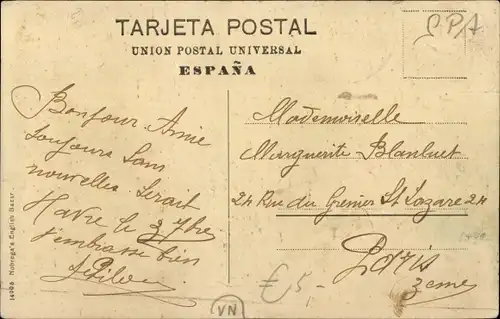 TARJETA POSTAL
UNION POSTAL UNIVERSAL
ESPAÑA
SPA
Bonjour Amie
toujours sans
nouvelles serait
Havre le 3 7bre
j'embrasse bien
Mademoiselle
Marguerite Blanluet
24 Rue du Grenier St Lazare 24
Paris
3eme
€ 5,-
VN
Nobrega's English Bazar.